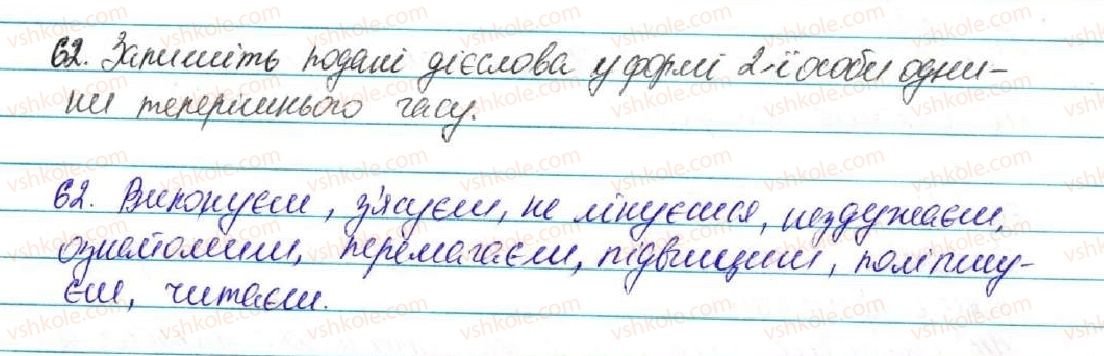 62. Запишіть подані дієслова у формі 2-ї особи одни-
ни теперішнього часу.
62. Виконуєш, з'ясуєш, не лінуєшся, нездужаєш,
ознайомиш, перемагаєш, підвищиш, поліпшу-
єш, читаєш.